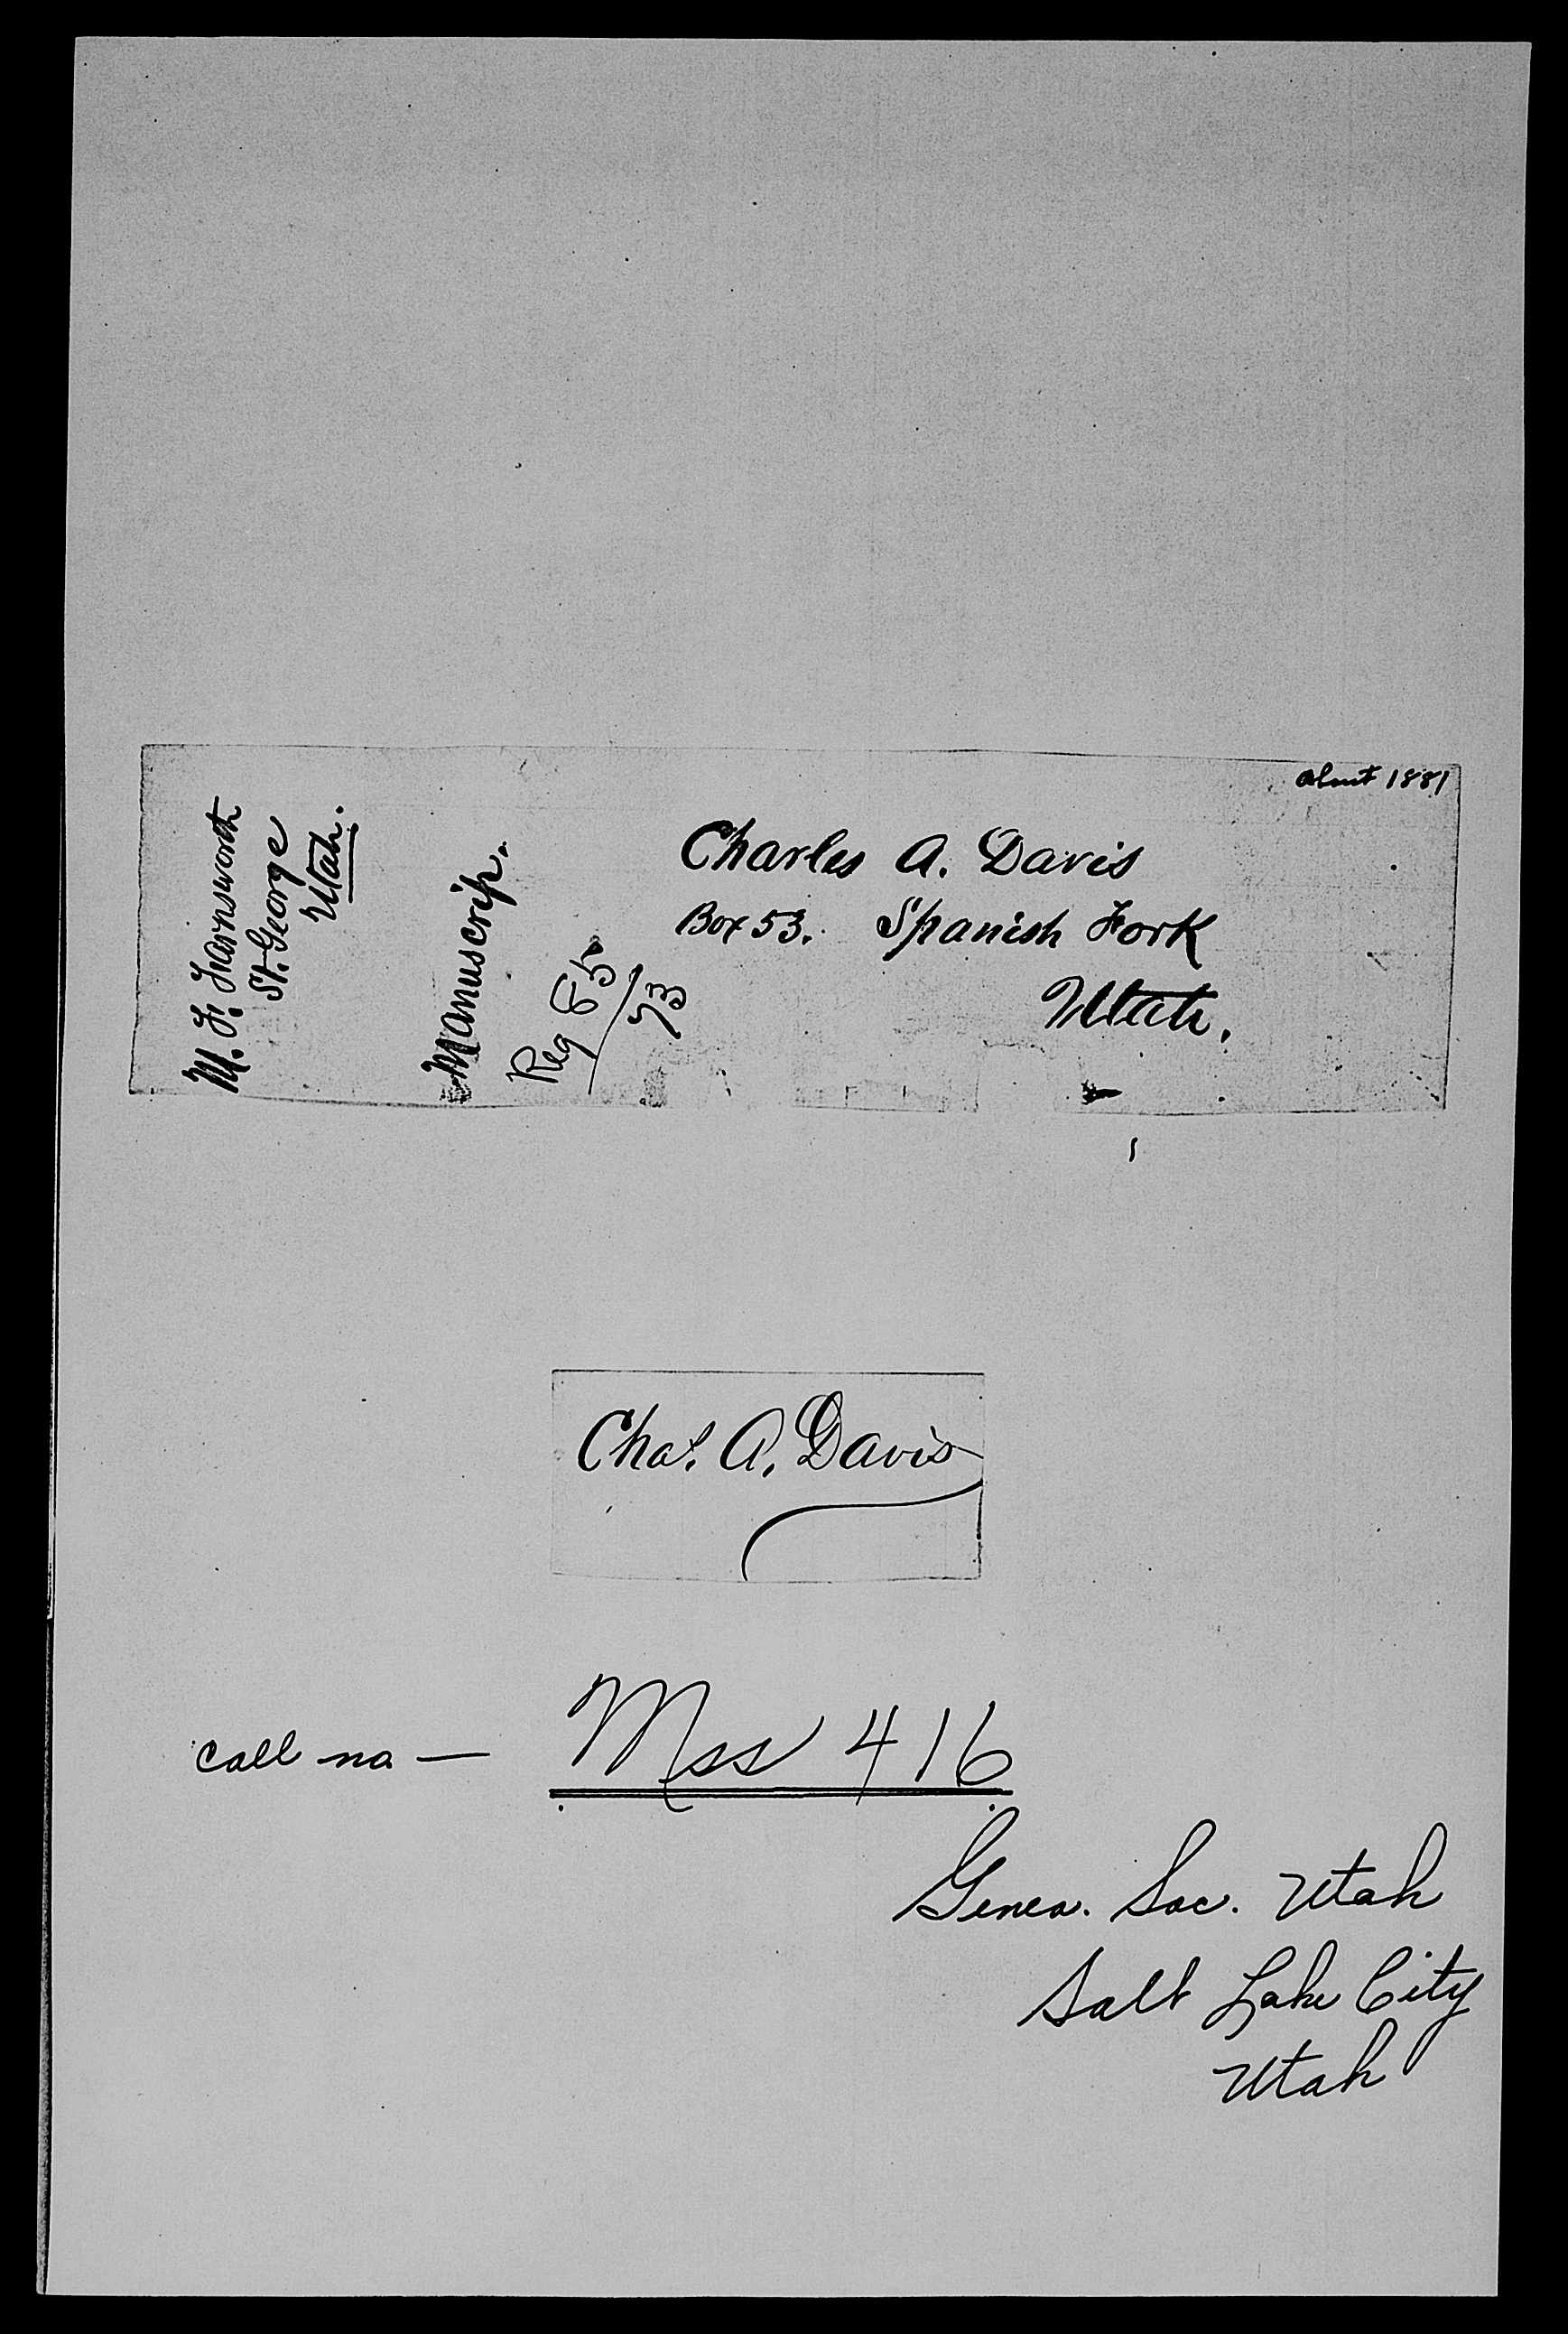 about 1881
M. F. Farnsworth
St. George
Utah.
Manuscrip.
Reg 85
73
Charles A. Davis
Box 53. Spanish Fork
Utah.
Chas. A. Davis
call no — Mss 416
Genea. Soc. Utah
Salt Lake City
Utah